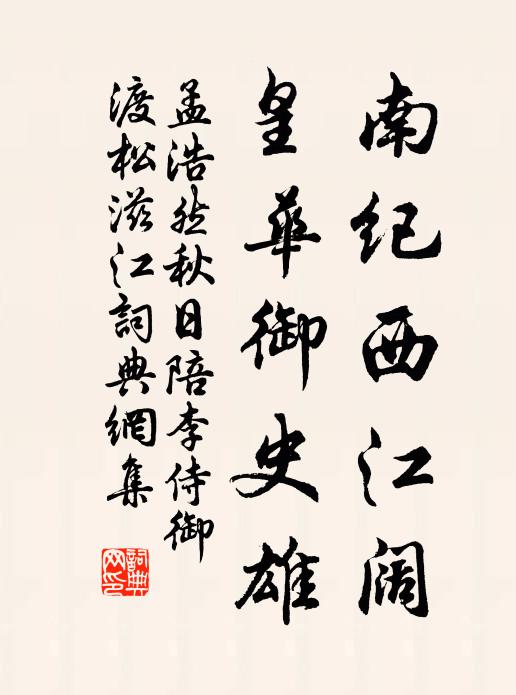 南纪西江阔
皇華御史雄
孟浩然秋日陪李侍御
渡松滋江詞典網集
詞典网印